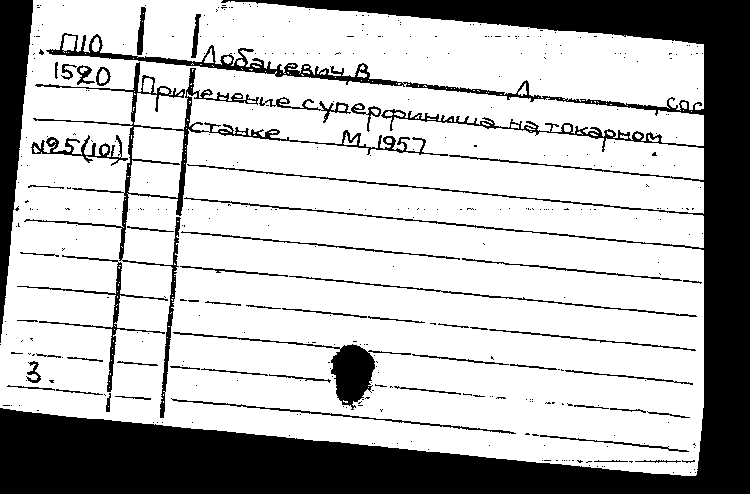 П10
Лобацевич, В Д, сос
1520
Применение суперфиниша на токарном
станке. М, 1957
№25(101)
3.